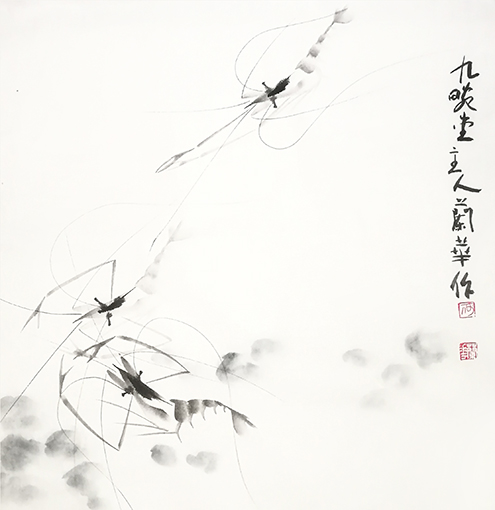 九畹堂主人蘭華作